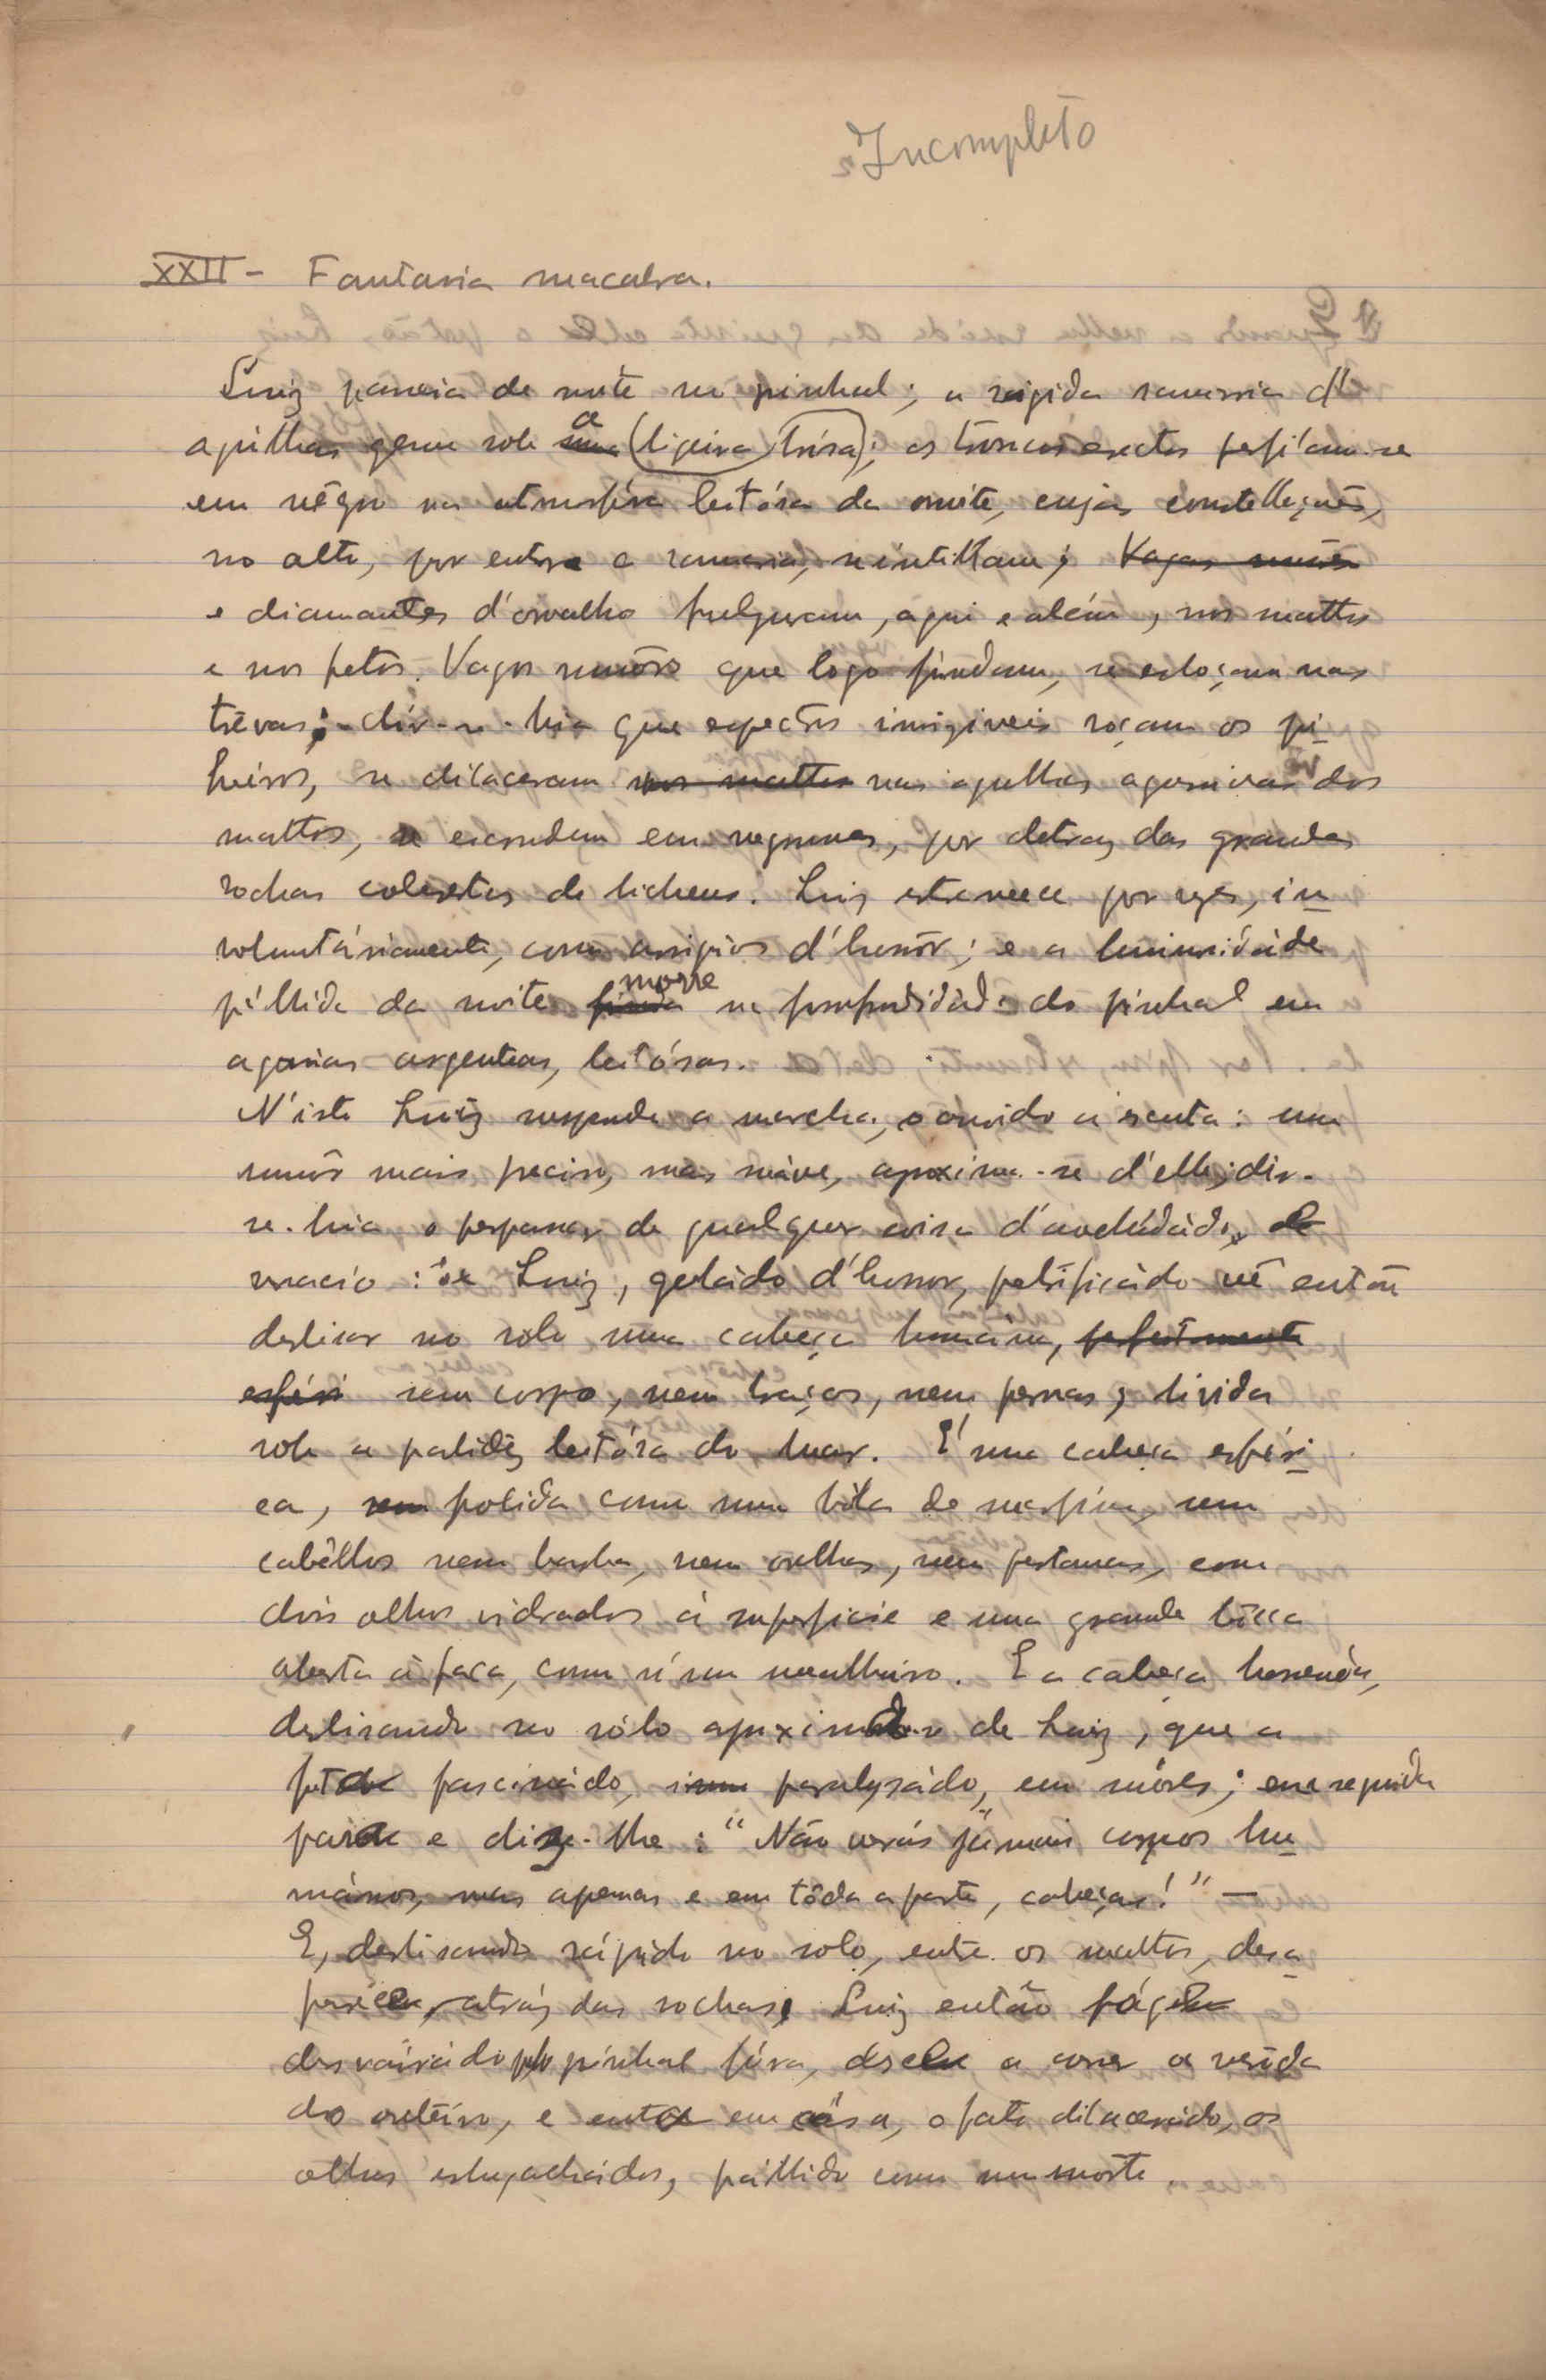 Incompleto
XXII - Fantasia macabra.
Luiz passeia de noite no pinhal; a rigida ramaria d'
agulhas geme sob a (ligeira brisa); os troncos erectos perfilam-se
em nêgro na atmosféra leitósa da noite, cujas constellações,
no alto, por entre a ramaria, scintillam; Vagos rumôres
e diamantes d'orvalho fulguram, aqui e além, nos mattos
e nos fetos. Vagos rumôres que logo findam, se esboçam nas
trévas; - dir-se-hia que espectros invisiveis roçam os pi-
nheiros, se dilaceram nos mattos nas agulhas agressivas dos
mattos, se escondem em negrumes, por detraz das grandes
rochas cobertas de lichens. Luiz estremece por vezes, in-
voluntáriamente, com arripios d'horrôr; e a luminosidáde
pállida da noite finda morre na profundidáde do pinhal em
agonias argenteas, leitósas.
N'isto Luiz suspende a marcha, o ouvido á escuta: um
rumôr mais preciso, mas suáve, aproxima-se d'elle; dir-
se-hia o perpassar de qualquer coisa d'avelludádo, de
macio: e Luiz, geládo d'horror, petrificádo vê então
deslisar no sólo uma cabeça humana, perfeitamente
esféri sem corpo, nem braços, nem pernas, livida
sob a palidêz leitósa do luar. É uma cabeça esféri-
ca, sem polida como uma bóla de marfim, sem
cabêllos nem barba, nem orelhas, nem pestanas, com
dois olhos vidrados á superficie e uma grande bôcca
aberta á faca, como n'um mealheiro. E a cabeça horrenda,
deslisando no sólo aproxima-se de Luiz, que a
fita fascinádo, paralysádo, em suóres; em seguida
pára e diz-lhe: "Não verás jámais corpos hu-
mános, mas apenas e em tôda a parte, cabeças!" -
E, deslisando rápido no solo, entre os mattos, desa-
parece, atráz das rochas, Luiz então fóge
desvairádo pelo pinhal fóra, desce a correr a veréda
do outeiro, e entra em cása, o fato dilacerádo, os
olhos esbugalhádos, pállido como um morto.